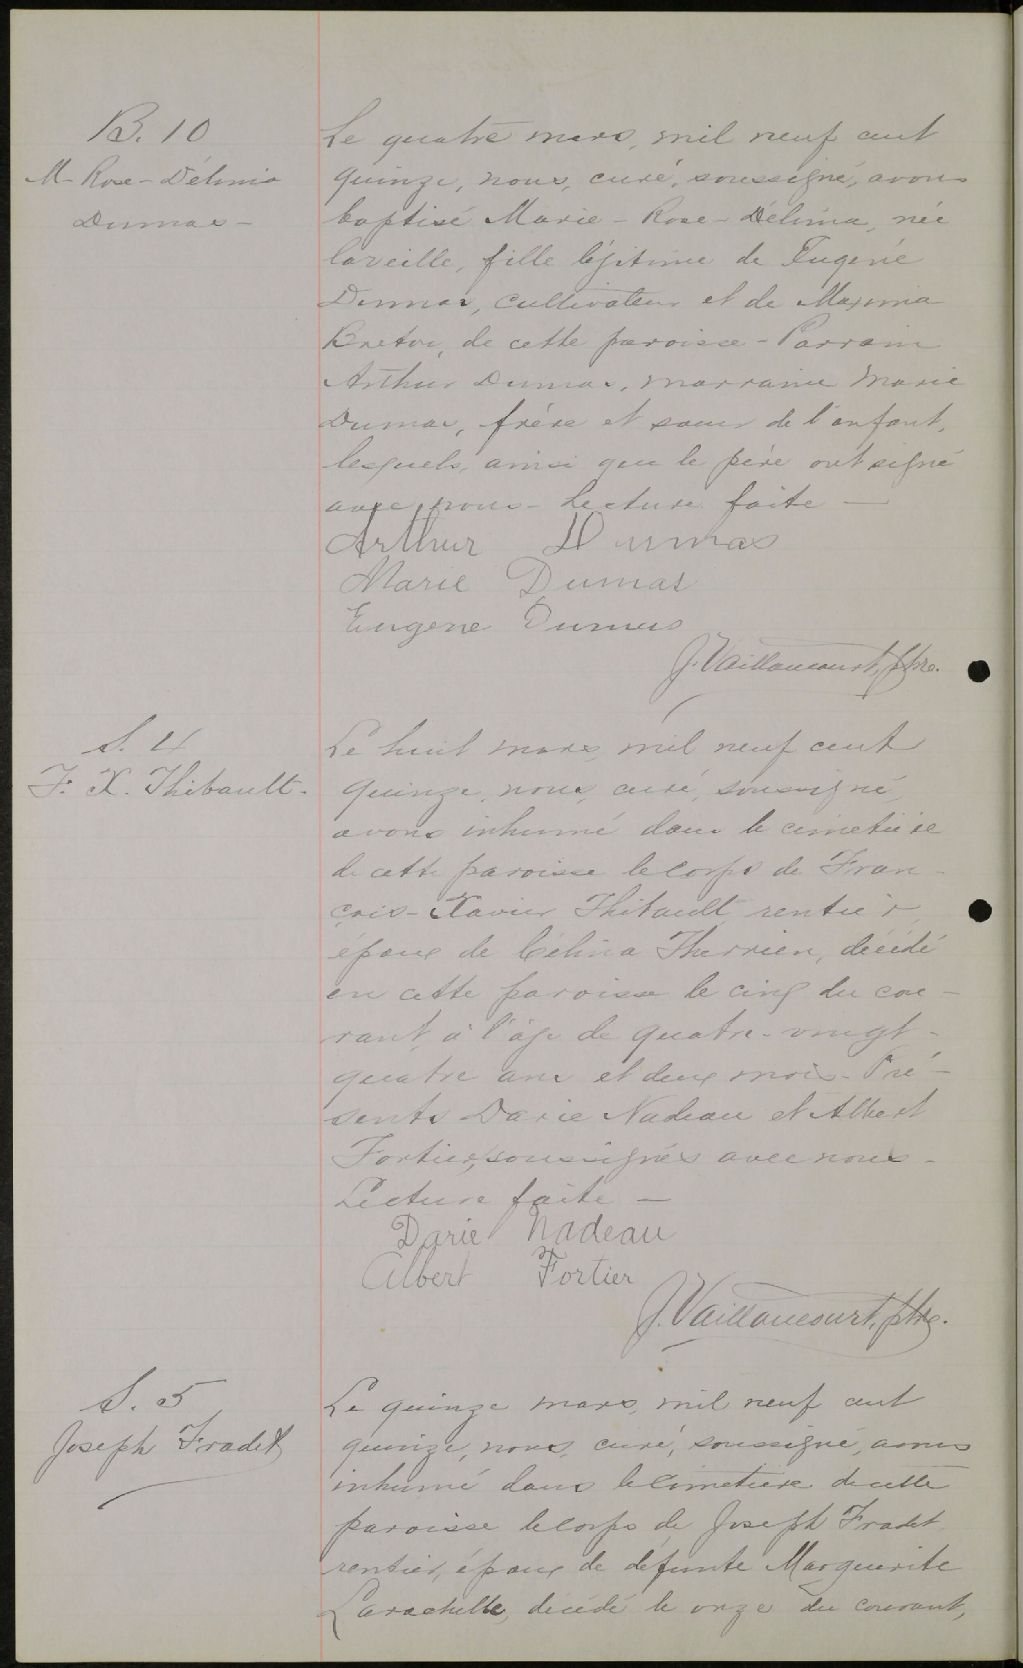 B. 10
M- Rose- Délima
Dumas-
Le quatre mars, mil neuf cent
quinze, nous, curé, soussigné, avons
baptisé Marie-Rose-Délima, née
la veille, fille légitime de Eugène
Dumas, cultivateur et de Maxima
Breton, de cette paroisse- Parrain
Arthur Dumas, marraine Marie
Dumas, frère et soeur de l'enfant,
lesquels, ainsi que le père ont signé
avec nous- Lecture faite —
Arthur Dumas
Marie Dumas
Eugene Dumas
J. Vaillancourt, ptre.
S. 4
F. X. Thibault.
Le huit mars, mil neuf cent
quinze, nous, curé, soussigné,
avons inhumé dans le cimetière
de cette paroisse le corps de Fran-
çois-Xavier Thibault, rentier,
époux de Célina Therrien, décédé
en cette paroisse le cinq du cou-
rant, à l'âge de quatre-vingt-
quatre ans et deux mois- Pré-
sents Darie Nadeau et Albert
Fortier, soussignés avec nous-
Lecture faite —
Darie Nadeau
Albert Fortier
J. Vaillancourt, ptre.
S. 5
Joseph Fradet
Le quinze mars, mil neuf cent
quinze, nous, curé, soussigné, avons
inhumé dans le cimetière de cette
paroisse le corps de Joseph Fradet
rentier, époux de défunte Marguerite
Larochelle, décédé le onze du courant,